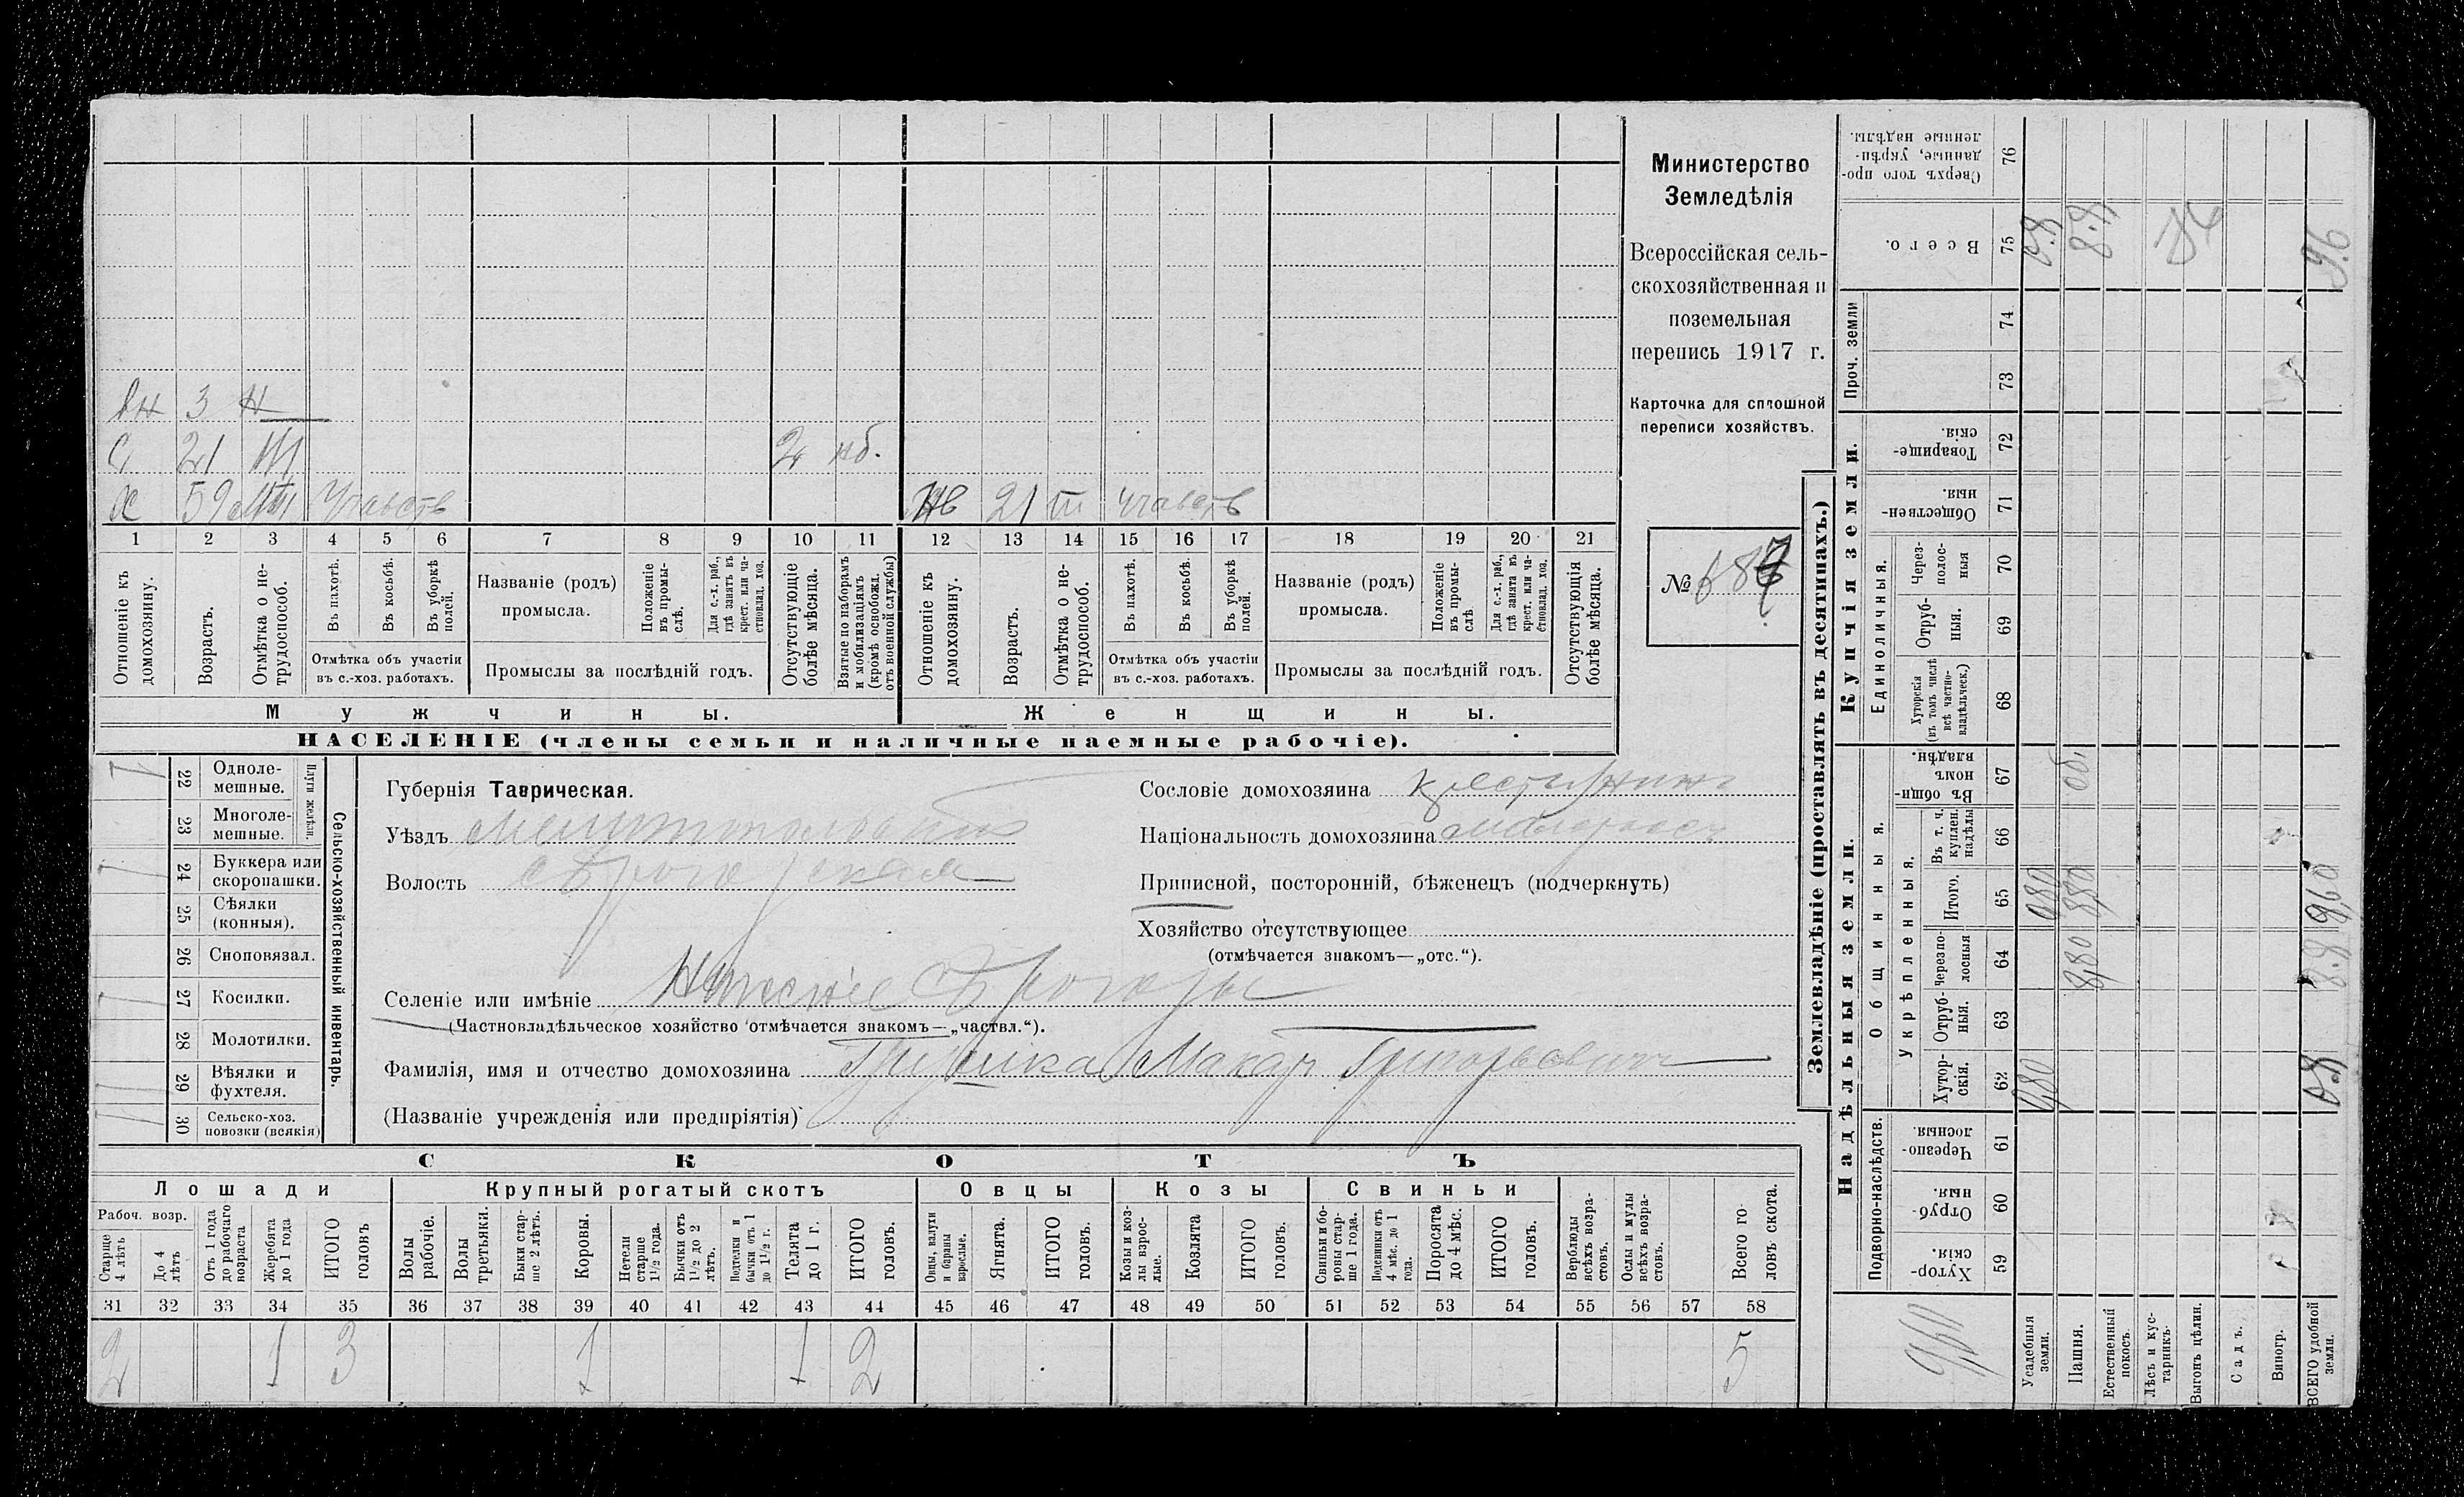 вн 3 н
с 21 2 нб.
х 59 Участв 21 ш участв
1 2 3 4 5 6 7 8 9 10 11 12 13 14 15 16 17 18 19 20 21
Отношеніе къ домохозяину.
Возрастъ.
Отмѣтка о не-
трудоспособ.
Въ пахотѣ.
Въ косьбѣ.
Въ уборкѣ
полей.
Отмѣтка объ участіи
въ с.-хоз. работахъ.
Названіе (родъ)
промысла.
Положеніе
въ промы-
слѣ.
Для с.-х. раб.,
гдѣ занятъ въ
крест. или ча-
стновлад. хоз.
Промыслы за послѣдній годъ.
Отсутствующіе
болѣе мѣсяца.
Взятые по наборамъ
и мобилизаціямъ
(кромѣ освобожд.
отъ военной службы)
Отношеніе къ
домохозяину.
Возрастъ.
Отмѣтка о не-
трудоспособ.
Въ пахотѣ.
Въ косьбѣ.
Въ уборкѣ
полей.
Отмѣтка объ участіи
въ с.-хоз. работахъ.
Названіе (родъ)
промысла.
Положеніе
въ промы-
слѣ
Для с.-х. раб.,
гдѣ занята въ
крест. или ча-
стновлад. хоз.
Промыслы за послѣдній годъ.
Отсутствующія
болѣе мѣсяца.
Мужчины.
Женщины.
НАСЕЛЕНІЕ (члены семьи и наличные наемные рабочіе).
Министерство
Земледѣлія
Всероссійская сель-
скохозяйственная и
поземельная
перепись 1917 г.
Карточка для сплошной
переписи хозяйствъ.
№ 687
Сельско-хозяйственный инвентарь.
Плуги желѣзн.
22 Одноле-
мешные.
23 Многоле-
мешные.
24 Буккера или
скоропашки.
25 Сѣялки
(конныя).
26 Сноповязал.
27 Косилки.
28 Молотилки.
29 Вѣялки и
фухтеля.
30 Сельско-хоз.
повозки (всякія)
Губернія Таврическая.
Уѣздъ Мелитопольскій
Волость
Сословіе домохозяина крестьянинъ
Національность домохозяина малороссъ
Приписной, посторонній, бѣженецъ (подчеркнуть)
Хозяйство отсутствующее
(отмѣчается знакомъ—„отс.“).
Селеніе или имѣніе Нижніе Сѣрогозы
(Частновладѣльческое хозяйство отмѣчается знакомъ—„частвл.“).
Фамилія, имя и отчество домохозяина Макаръ Григорьевичъ
(Названіе учрежденія или предпріятія)
СКОТЪ
Лошади
Крупный рогатый скотъ
Овцы
Козы
Свиньи
Рабоч. возр.
Старше
4 лѣтъ
До 4
лѣтъ
Отъ 1 года
до рабочаго
возраста
Жеребята
до 1 года
ИТОГО
головъ
Волы
рабочіе.
Волы
третьяки.
Быки стар-
ше 2 лѣтъ.
Коровы.
Нетели
старше
1½ года.
Бычки отъ
1½ до 2
лѣтъ.
Подтелки и
бычки отъ 1
до 1½ г.
Телята
до 1 г.
ИТОГО
головъ.
Овцы, валухи
и бараны
взрослые.
Ягнята.
ИТОГО
головъ.
Козы и коз-
лы взрос-
лые.
Козлята
ИТОГО
головъ.
Свиньи и бо-
ровы стар-
ше 1 года.
Подсвинки отъ
4 мѣс. до 1
года.
Поросята
до 4 мѣс.
ИТОГО
головъ.
Верблюды
всѣхъ возра-
стовъ.
Ослы и мулы
всѣхъ возра-
стовъ.
Всего го-
ловъ скота.
31 32 33 34 35 36 37 38 39 40 41 42 43 44 45 46 47 48 49 50 51 52 53 54 55 56 57 58
2 1 3 1 1 2 5
Землевладѣніе (проставлять въ десятинахъ.)
Надѣльныя земли.
Купчія земли.
Проч. земли
Сверхъ того про-
данные, укрѣп-
ленные надѣлы.
76
Всего.
75
74
73
Товарище-
скія.
72
Обществен-
ныя.
71
Единоличныя.
Через-
полос-
ныя
70
Отруб-
ныя.
69
Хуторскія
(въ томъ числѣ
всѣ частно-
владѣльческ.)
68
Общинныя.
Въ общи-
номъ
владѣн.
67
Укрѣпленныя.
Въ т. ч.
куплен.
надѣлы
66
Итого.
65
Черезпо-
лосныя
64
Отруб-
ныя.
63
Хутор-
скія.
62
Подворно-наслѣдств.
Черезпо-
лосныя.
61
Отруб-
ныя.
60
Хутор-
скія.
59
Усадебныя
земли.
Пашня.
Естественный
покосъ.
Лѣсъ и кус-
тарникъ.
Выгонъ цѣлин.
Садъ.
Виногр.
ВСЕГО удобной
земли.
0.8
8.8
9.6
0,80
8,80
9,60
8,80
8.8
0,80
0.8
9,60